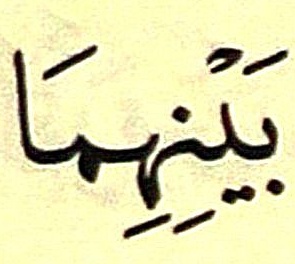 بَيْنِهِمَا